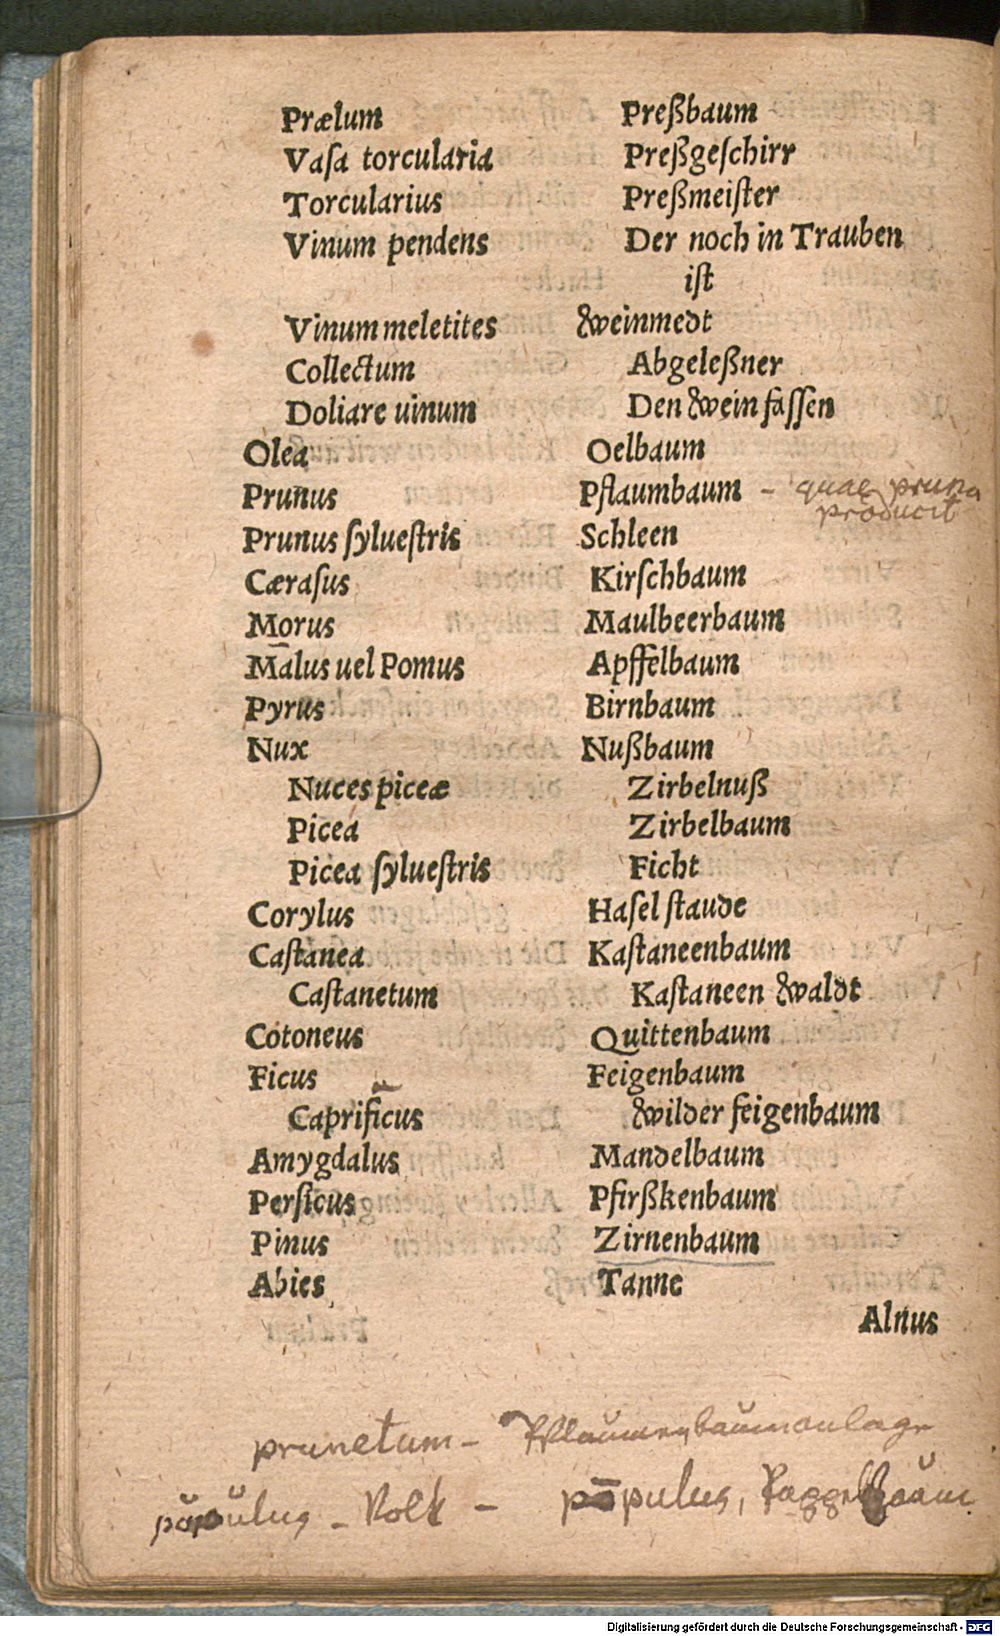 Prælum Preßbaum
Vaſa torcularia Preßgeſchirr
Torcularius Preßmeiſter
Vinum pendens Der noch in Trauben
iſt
Vinum meletites Weinmedt
Collectum Abgeleßner
Doliare uinum Den Wein faſſen
Olea Oelbaum
Prunus Pflaumbaum - quae pruna
producit
Prunus ſylueſtris Schleen
Cæraſus Kirſchbaum
Morus Maulbeerbaum
Malus uel Pomus Apffelbaum
Pyrus Birnbaum
Nux Nußbaum
Nuces piceæ Zirbelnuß
Picea Zirbelbaum
Picea ſylueſtris Ficht
Corylus Haſel ſtaude
Caſtanea Kaſtaneenbaum
Caſtanetum Kaſtaneen Waldt
Cotoneus Quittenbaum
Ficus Feigenbaum
Caprificus Wilder feigenbaum
Amygdalus Mandelbaum
Perſicus Pfirßkenbaum
Pinus Zirnenbaum
Abies Tanne
Alnus
prunetum - Pflaumenbaumanlage
pŏpulus - Volk - pōpulus, Pappelbaum
Digitalisierung gefördert durch die Deutsche Forschungsgemeinschaft - DFG